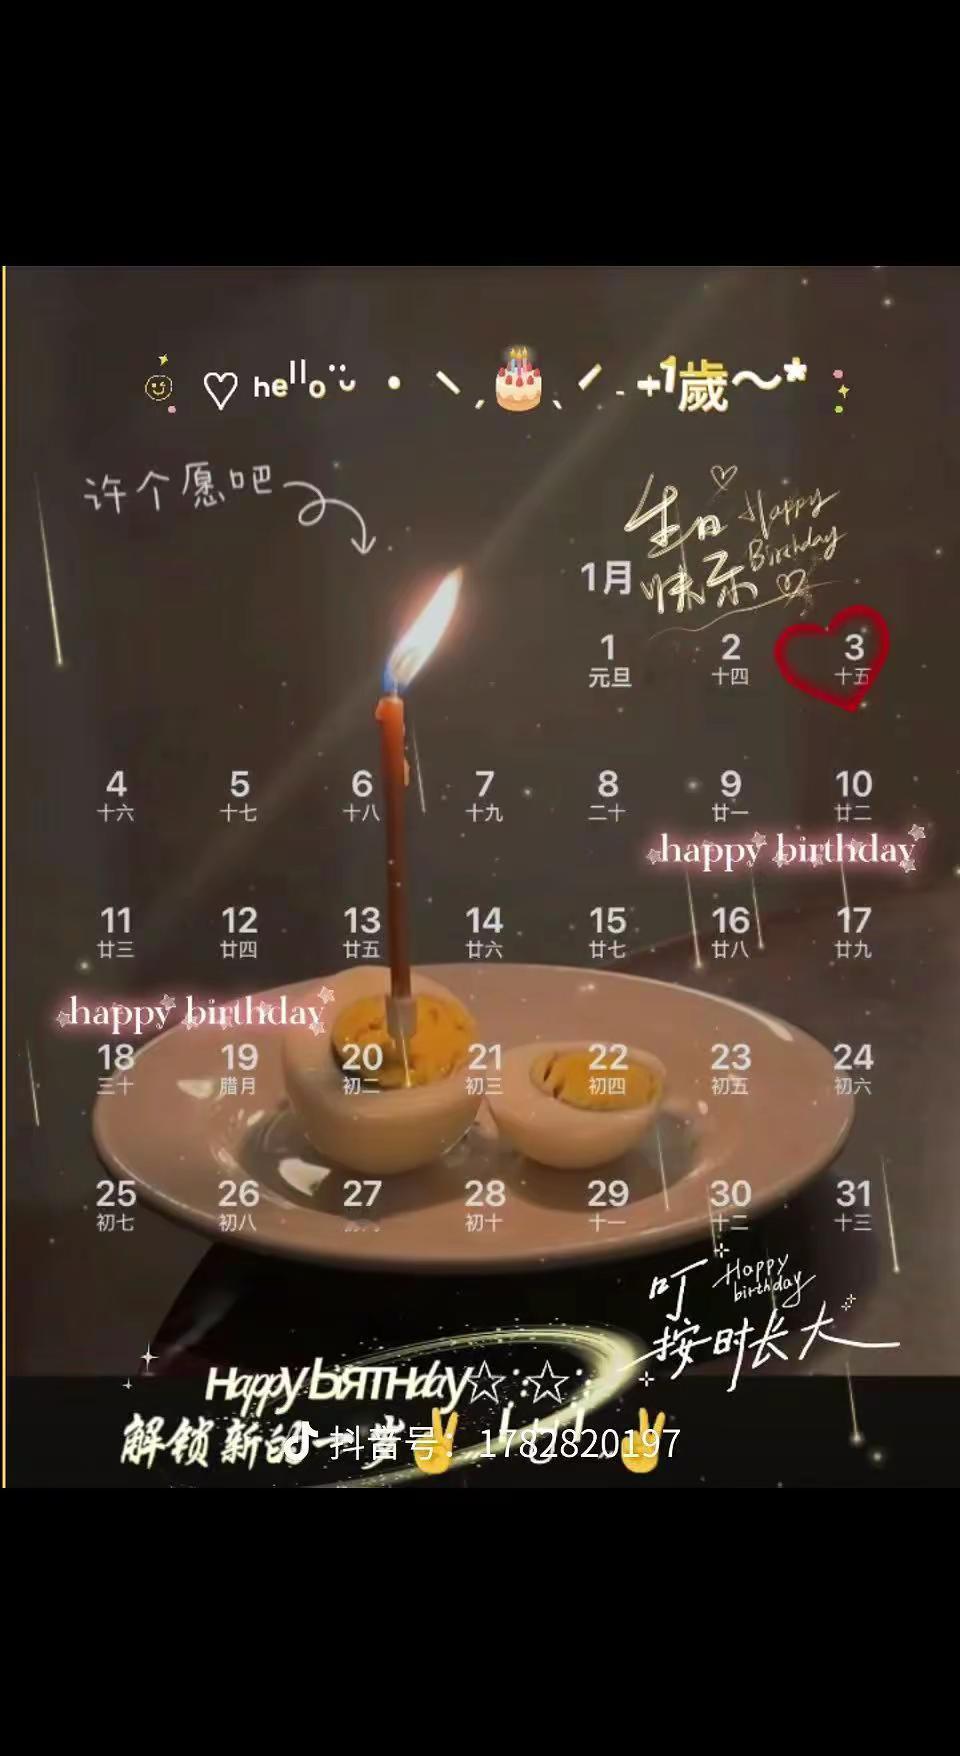 hello +1歲~*
许个愿吧
生日快乐 Happy Birthday
1月
1 2 3
元旦 十四 十五
4 5 6 7 8 9 10
十六 十七 十八 十九 二十 廿一 廿二
happy birthday
11 12 13 14 15 16 17
廿三 廿四 廿五 廿六 廿七 廿八 廿九
happy birthday
18 19 20 21 22 23 24
三十 腊月 初二 初三 初四 初五 初六
25 26 27 28 29 30 31
初七 初八 初十 十一 十二 十三
叮 Happy birthday
按时长大
Happy birthday☆:☆:
解锁新的一岁
抖音号: 1782820197